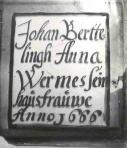 Johan Bertte
lingh Anna
Wermessen
hausfrauwe
Anno 1666